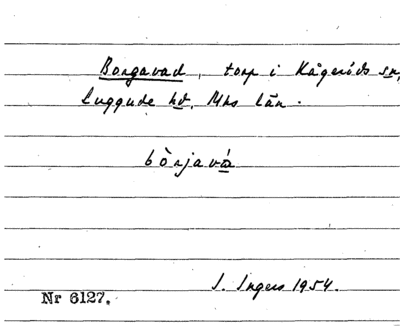 Borgavad, torp i Kågeröds sn,
Luggude hd, Mhs län.
bòrjavá
I. Ingers 1954.
Nr 6127.